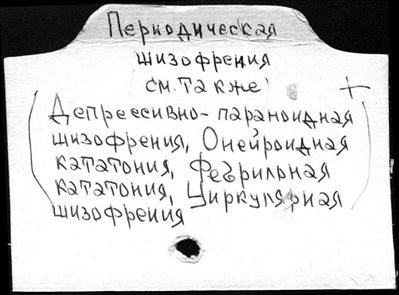 Периодическая
шизофрения
см. также
(Депрессивно-параноидная
шизофрения, Онейроидная
кататония, Фебрильная
кататония, Циркулярная
шизофрения)